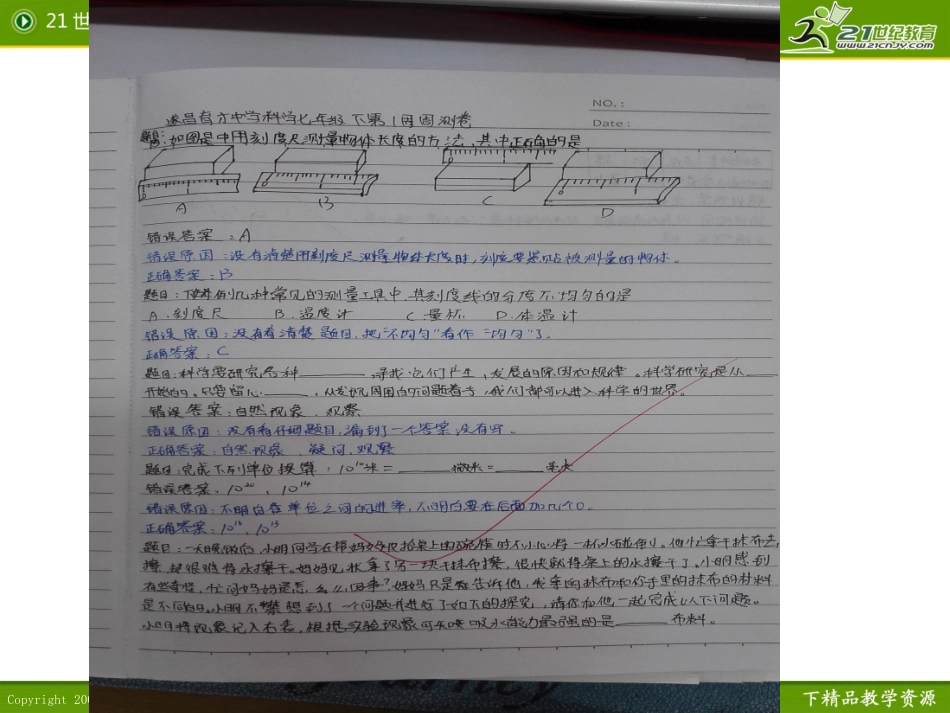 21 世
21世纪教育
www.21cnjy.com
NO.:
Date:
遂昌育才中学科学七年级下第1周周测卷
题目:如图是中用刻度尺测量物体长度的方法,其中正确的是
A B C D
错误答案:A
错误原因:没有清楚用刻度尺测量物体长度时,刻度要紧贴被测量的物体。
正确答案:B
题目:下列几种常见的测量工具中,其刻度线的分度不均匀的是
A.刻度尺 B.温度计 C.量杯 D.体温计
错误原因:没有看清楚题目,把"不均匀"看作"均匀"了。
正确答案:C
题目:科学要研究各种______,寻找它们产生、发展的原因和规律。科学研究是从____
开始的。只要留心______,从发现周围的问题着手,我们都可以进入科学的世界。
错误答案:自然现象、观察
错误原因:没有看仔细题目,漏到了一个答案没有写。
正确答案:自然现象、疑问、观察
题目:完成下列单位换算:10¹⁰米=______微米=______毫米
错误答案、10²⁰、10¹⁴
错误原因:不明白各单位之间的进率,不明白要在后面加几个0。
正确答案:10¹⁶、10¹³
题目:一天晚饭后,小明同学在帮妈妈收拾桌上的碗筷时不小心将一杯水碰倒。他忙拿干抹布去
擦,却很难将水擦干。妈妈见状拿了另一块干抹布擦,很快就将桌上的水擦干了。小明感到
有些奇怪,忙问妈妈是怎么回事?妈妈只是告诉他,我拿的抹布和你手里的抹布的材料
是不同的。小明不禁想到了一个问题并进行了如下的探究,请你和他一起完成以下问题。
小明将现象记入右表,根据实验现象可知吸水能力最强的是______布料。
Copyright 200
下精品教学资源